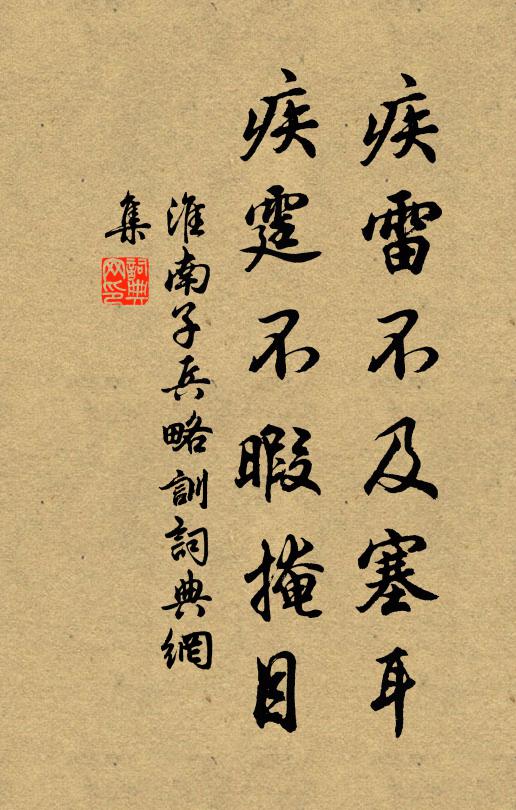 疾雷不及塞耳
疾霆不暇掩目
淮南子兵略訓詞典網
集
詞典网印